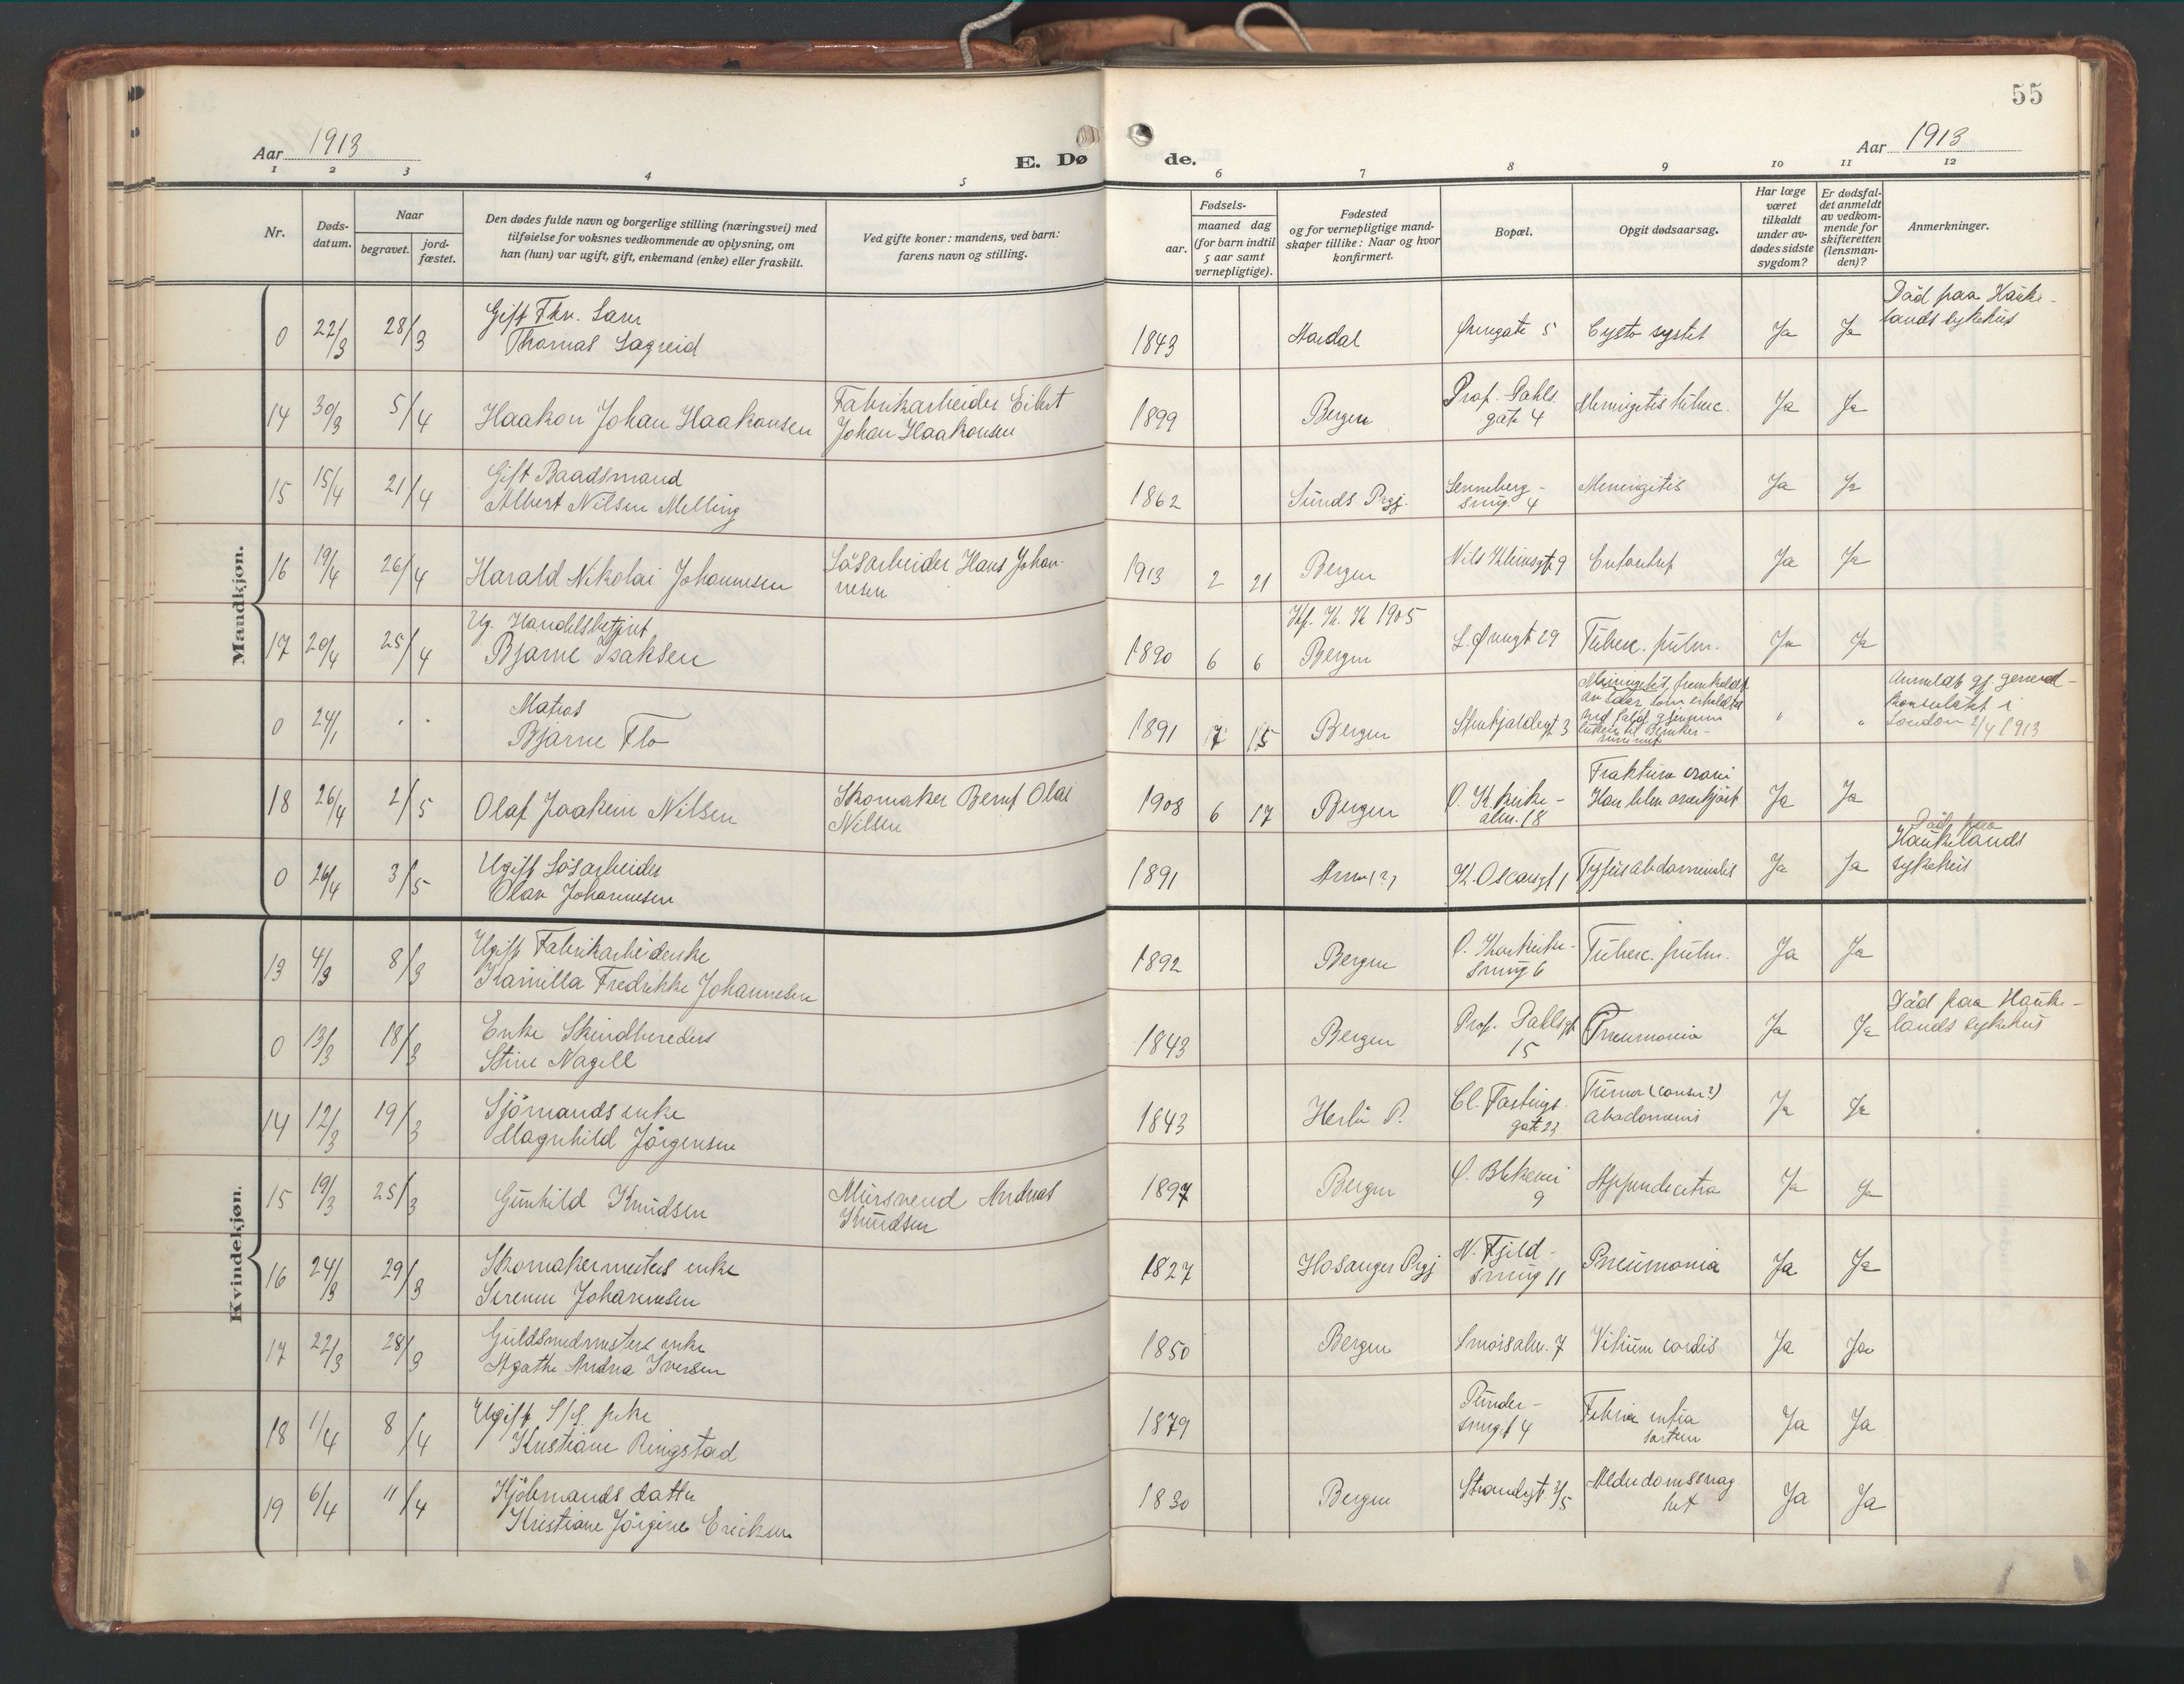 55
Aar 1913
E. Dø
de.
Aar 1913
1 2 3 4 5 6 7 8 9 10 11 12
Nr.
Døds-
datum.
Naar
begravet.
jord-
fæstet.
Den dødes fulde navn og borgerlige stilling (næringsvei) med
tilføielse for voksnes vedkommende av oplysning, om
han (hun) var ugift, gift, enkemand (enke) eller fraskilt.
Ved gifte koner: mandens, ved barn:
farens navn og stilling.
Fødsels-
aar.
maaned dag
(for barn indtil
5 aar samt
vernepligtige).
Fødested
og for vernepligtige mand-
skaper tillike: Naar og hvor
konfirmert.
Bopæl.
Opgit dødsaarsag.
Har læge
været
tilkaldt
under av-
dødes sidste
sygdom?
Er dødsfal-
det anmeldt
av vedkom-
mende for
skifteretten
(lensman-
den)?
Anmerkninger.
Mandkjøn.
0 22/3 28/3 Gift
Thomas Sagreid
1843 Aardal 5 Ja Ja
Død paa Hauke-
lands sykehus
14 30/3 5/4 Haakon Johan Haakonsen
Fabrikarbeider Eilert
Johan Haakonsen
1899 Bergen
Prof. Dahls
gate 4
Meningitis tuberc. Ja Ja
15 15/4 21/4 Gift Baadsmand
Albert Nilsen Melling
1862 Sunds Prgj.
Senneberg-
smug. 4
Meningitis Ja Ja
16 19/4 26/4 Harald Nikolai Johannesen
Løsarbeider Hans Johan-
nesen
1913 2 21 Bergen
Nils Kleimsgt 9 Ja Ja
17 20/4 25/4 Ug. Handelsbetjent
Bjarne Isaksen
1890 6 6
Kf. K. K 1905
Bergen
L. Øvregt 29 Tuberc. pulm. Ja Ja
0 24/1 . . Matros
Bjarne Flo
1891 7 15 Bergen
Stenkjeldergt 3
Meningitis, fremkaldt
av saar som erholdtes
ved fald gjennem
" "
Anmeldt gj. general-
konsulatet i
London 2/4 1913
18 26/4 2/5 Olaf Joakim Nilsen
Skomaker Bernt Olai
Nilsen
1908 6 17 Bergen
Ø. K. kirke-
alm. 18
Fraktura crani
Han blev overkjørt Ja Ja
0 26/4 3/5 Ugift Løsarbeider
Olav Johannesen
1891 K. Oscarsgt 1 Tyfus abdominalis Ja Ja
Død paa
Haukelands
sykehus
Kvindekjøn.
13 4/3 8/3 Ugift Fabrikarbeiderske
Kamilla Fredrikke Johannesen
1892 Bergen
Ø. Korskirke-
smug 6
Tuberc. pulm. Ja Ja
0 13/3 18/3 Enke Skindbereders
Stine Nagell
1843 Bergen
Prof. Dahls gt
15
Pneumonia Ja Ja
Død paa Hauke-
lands sykehus
14 12/3 19/3 Sjømands enke
Magnhild Jørgensen
1843 Herlø P.
Cl. Fastings
gate 23
Tumor (cancer?)
abadominis Ja Ja
15 19/3 25/3 Gunhild Knudsen
Mursvend Andreas
Knudsen
1897 Bergen
Ø. Blekevei
9
Appendicitra Ja Ja
16 24/3 29/3 Skomakermesters enke
Serene Johannesen
1827 Hosanger Prgj
N. Fjeld-
smug 11
Pneumonia Ja Ja
17 22/3 28/3 Guldsmedmesters enke
Agathe Andrea Iversen
1850 Bergen Smørsalm. 7 Vitium cordis Ja Ja
18 1/4 8/4 Ugift
Kristiane Ringstad
1879
Pinder-
smugt 4
Ja Ja
19 6/4 11/4 Kjøbmands datter
Kristiane Jørgine Ericksen
1830 Bergen
Strandgt 3/5
Alderdomssvag
het
Ja Ja